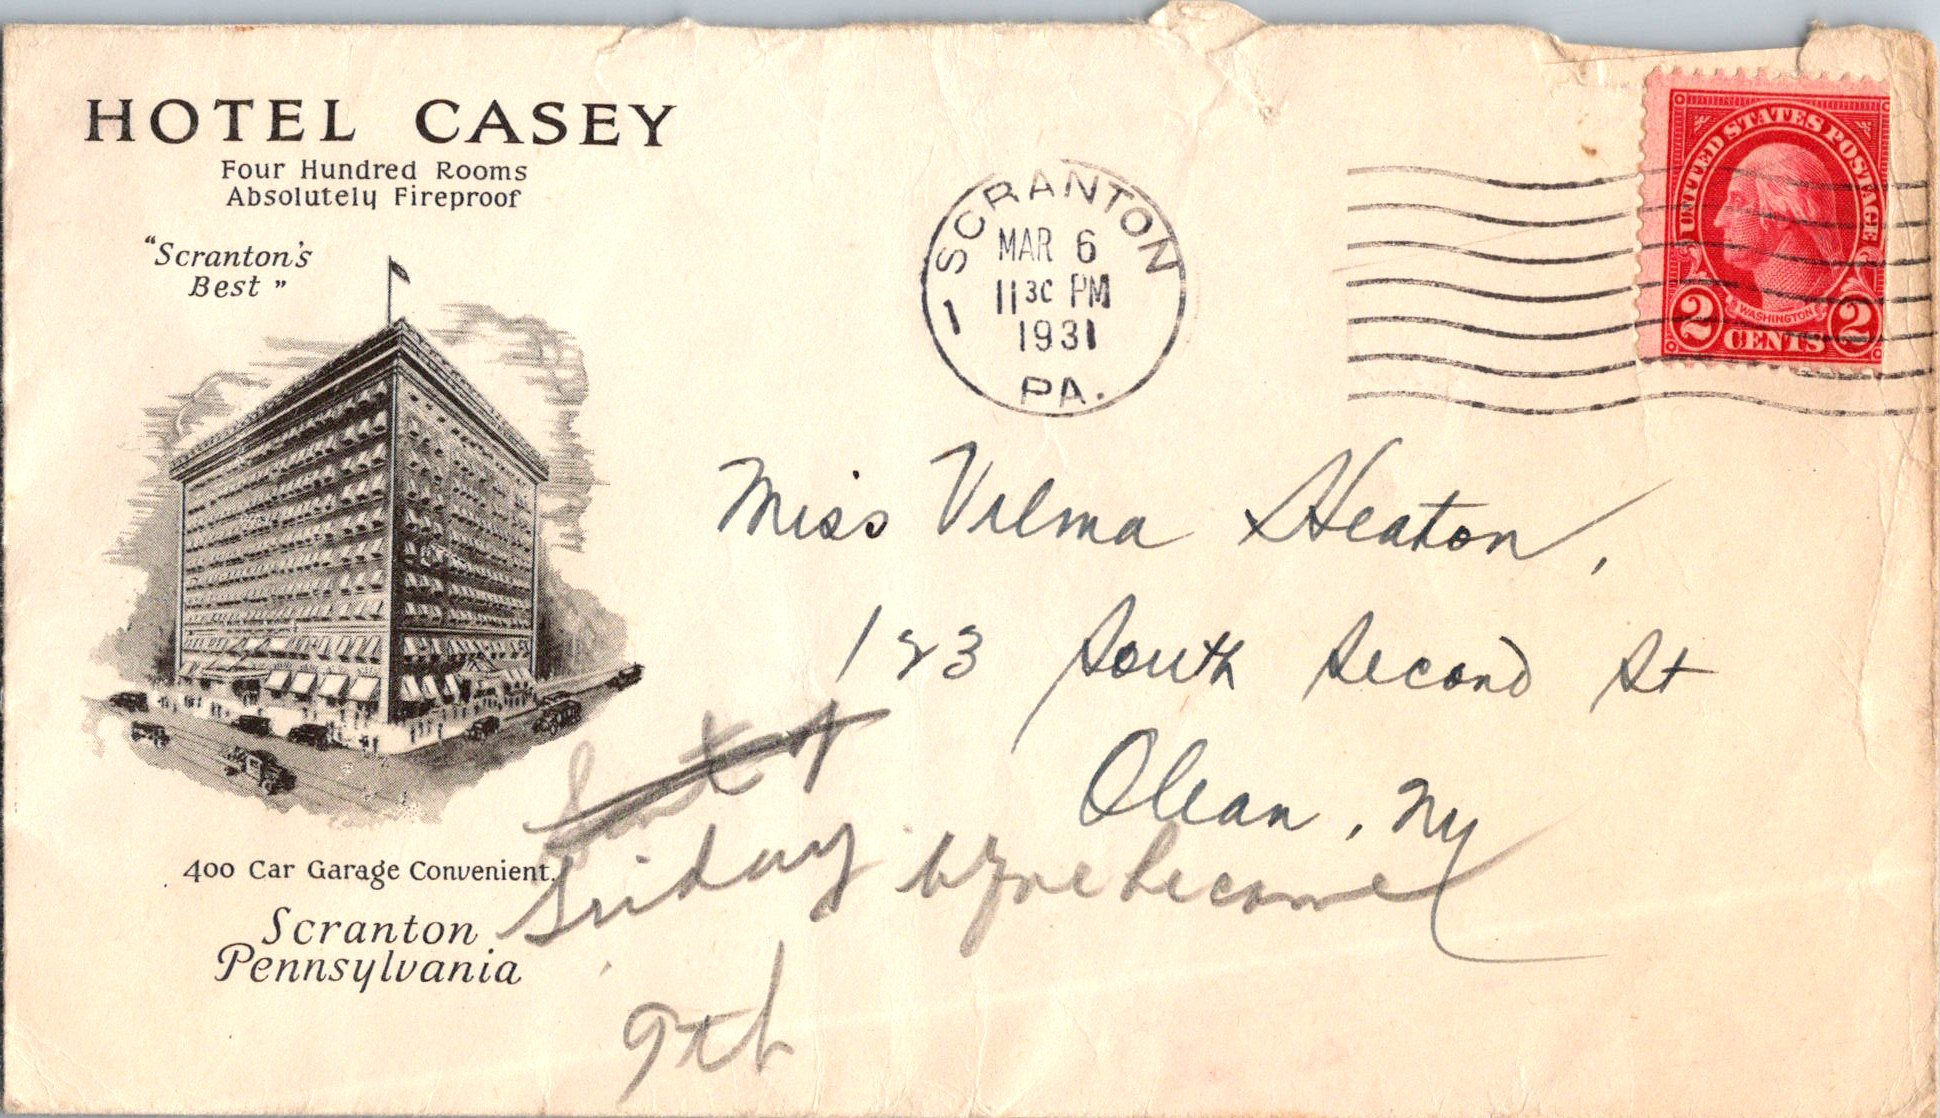 HOTEL CASEY
Four Hundred Rooms
Absolutely Fireproof
"Scranton's
Best"
400 Car Garage Convenient.
Scranton
Pennsylvania
SCRANTON
1
MAR 6
11 30 PM
1931
PA.
UNITED STATES POSTAGE
WASHINGTON
2 CENTS 2
Miss Vilma Heaton,
123 South Second St
Olean, Ny
Friday
9th